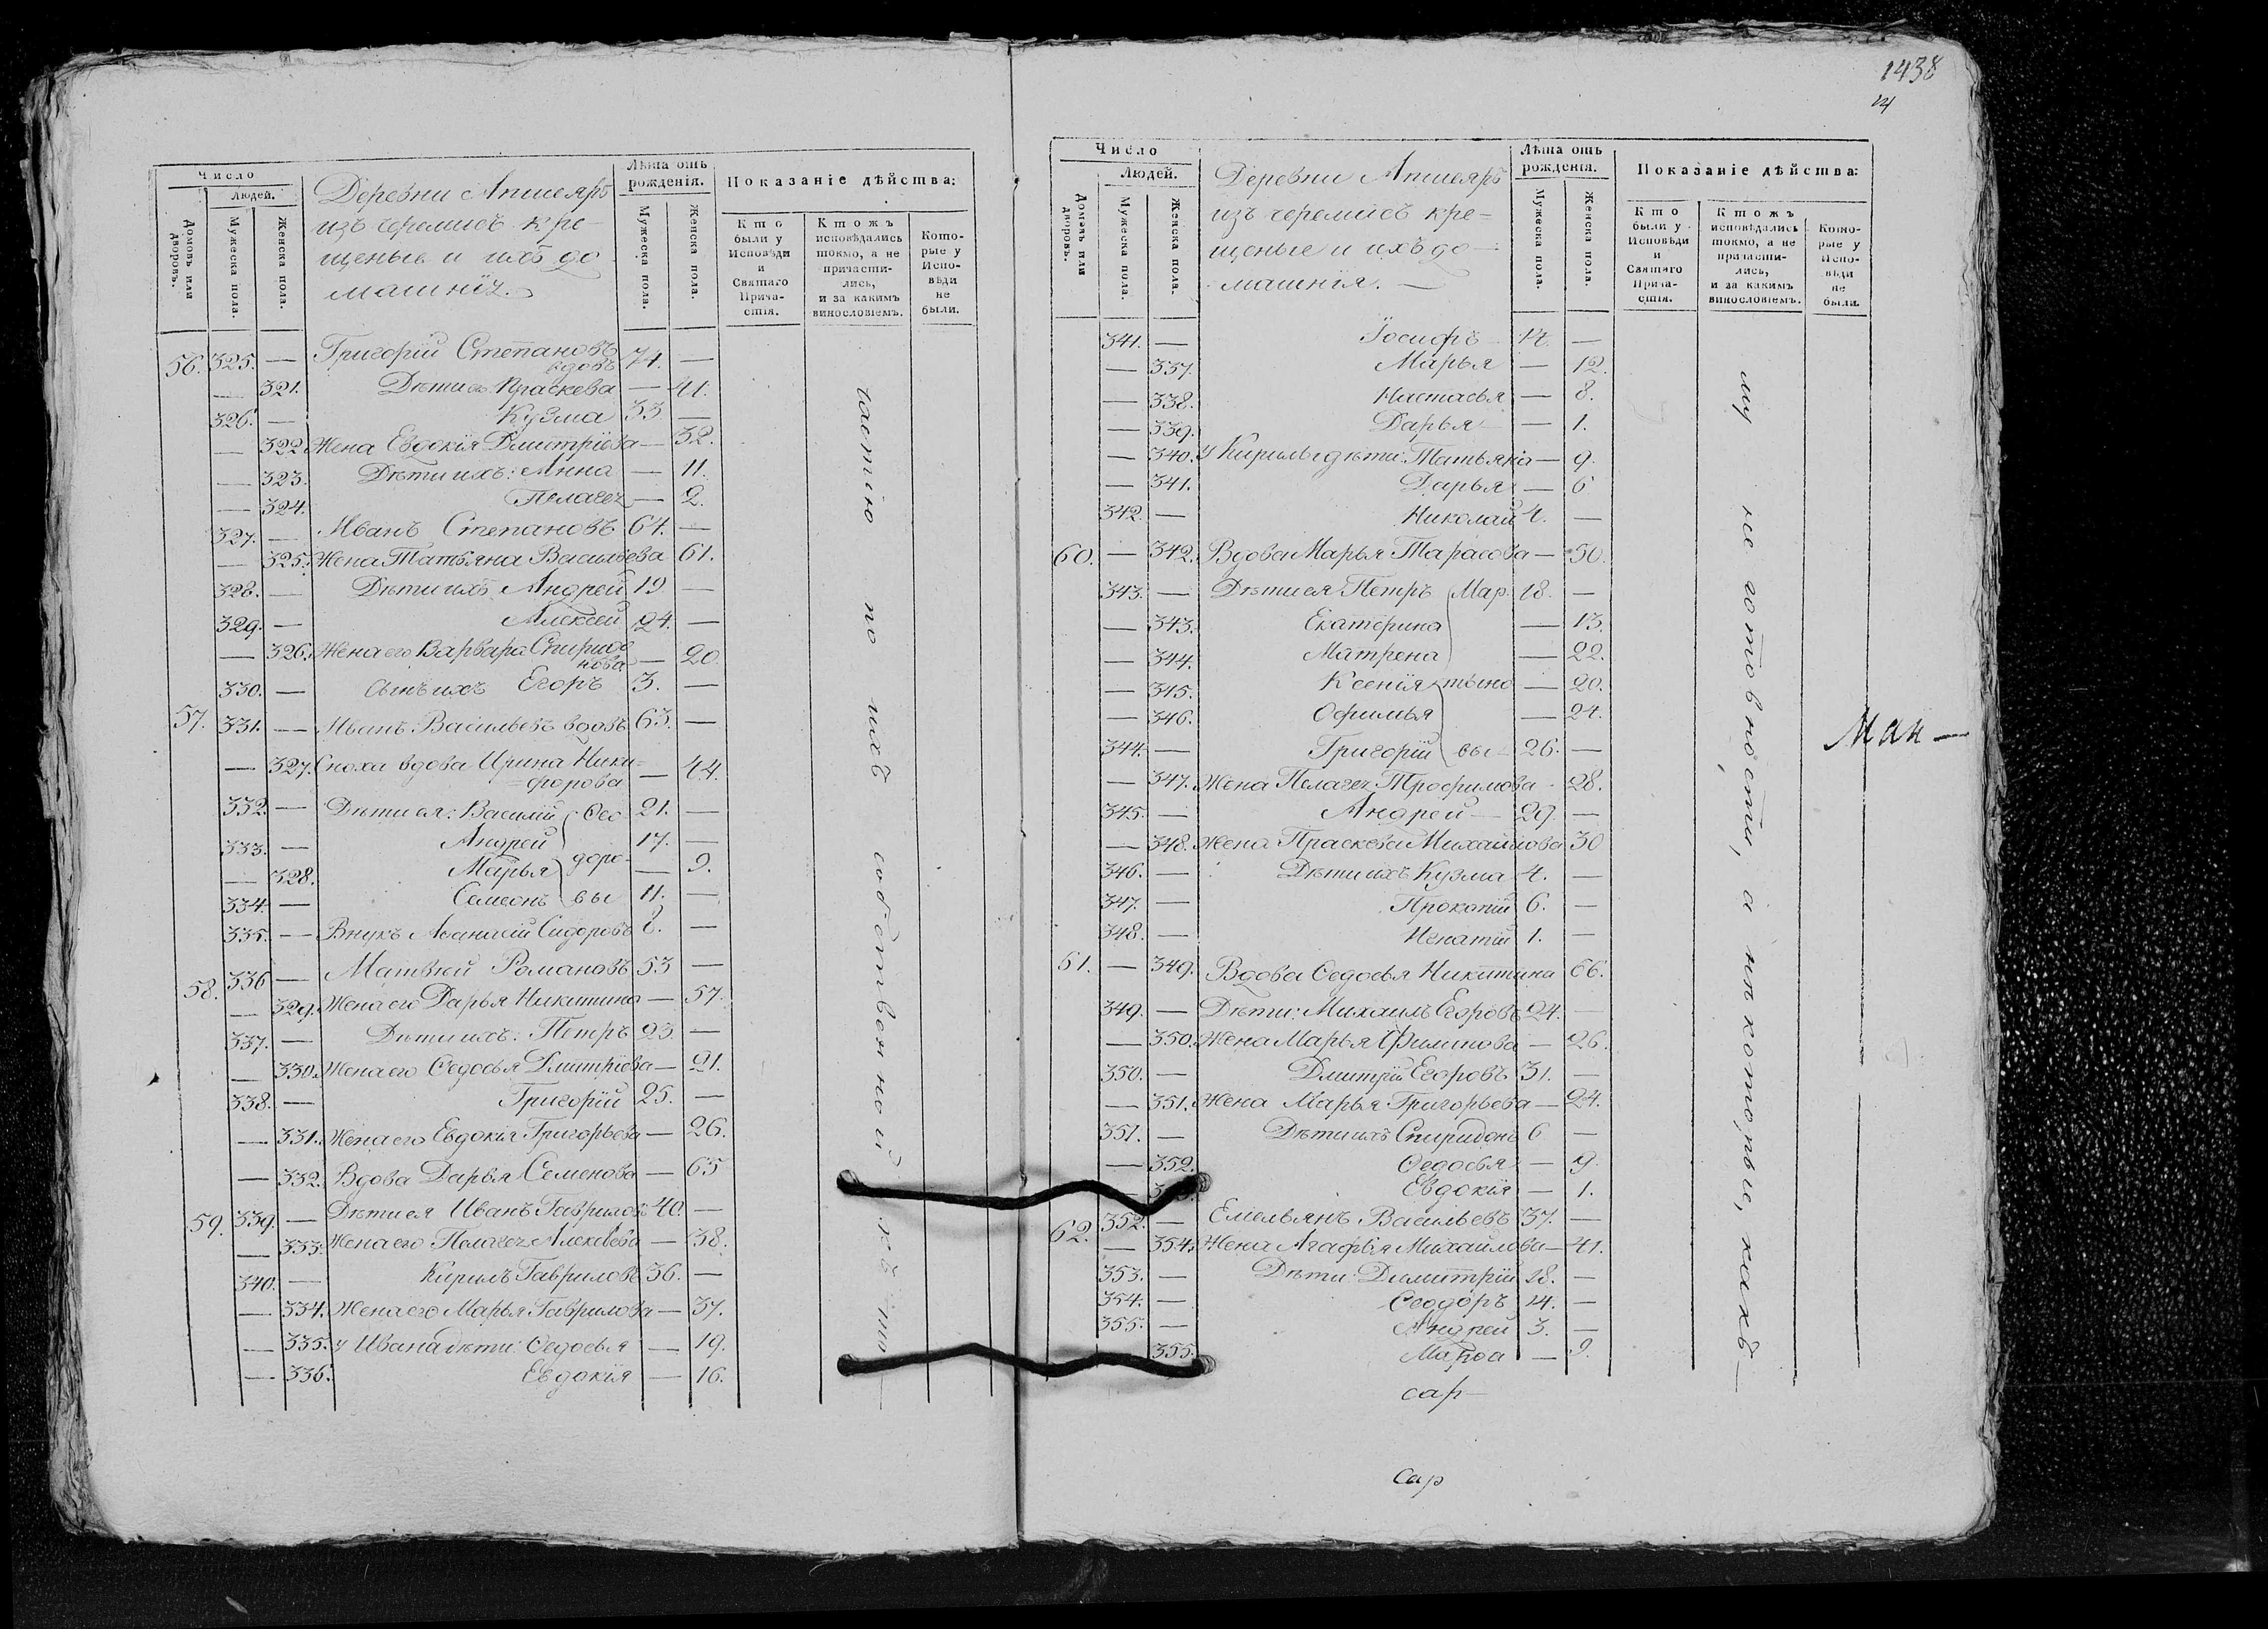 1438
14
Число
Людей.
Домовъ или дворовъ.
Мужеска пола.
Женска пола.
Деревни Апшеяръ
изъ черемисъ кре-
щеные и ихъ до
машнія.
Лѣта отъ рожденія.
Мужеска пола.
Женска пола.
Показаніе дѣйства:
Кто были у Исповѣди и Святаго Прича-стія.
Ктожъ исповѣдались токмо, а не причасти-лись, и за какимъ винословіемъ.
Кото-рые у Испо-вѣди не были.
56. 325. — Григорій Степановъ вдовъ 74. —
— 321. Дѣти ея Праскева — 41.
326. — Кузма 33 —
— 322 Жена Евдокія Дмитріева — 32.
— 323. Дѣти ихъ: Анна — 11.
— 324. Пелагея — 2.
327. — Иванъ Степановъ 64. —
— 325. Жена Татьяна Васильева 61.
328. — Дѣти ихъ Андрей 19 —
329. — Алексей 24. —
— 326. Жена его Варвара Спиридо
нова — 20.
330. — сынъ ихъ Егоръ 3. —
57. 331. — Иванъ Васильевъ вдовъ 63. —
— 327. Сноха вдова Ирина Ники=
=форова — 44.
332 — Дѣти ея: Василій Ѳео 21. —
333. — Андрей 17. —
— 328. Марья доро- — 9.
334. — Семеонъ вы 11. —
335. — Внукъ Аѳанасій Сидоровъ 8. —
58. 336 — Матвѣй Романовъ 53 —
— 329. Жена его Дарья Никитина — 57.
337. — Дѣти ихъ: Петръ 23. —
— 330. Жена его Ѳедосья Дмитріева — 21.
338. — Григорій 25. —
— 331. Жена его Евдокія Григорьева — 26.
— 332. Вдова Дарья Семенова — 65
59. 339. — Дѣти ея Иванъ Гавриловъ 40. —
— 333. Жена его Пелагея Алексѣева — 38.
340. — Кирилъ Гавриловъ 36. —
— 334. Жена его Марья Гаврилова — 37.
— 335. У Ивана дѣти: Ѳедосья — 19.
— 336. Евдокія — 16.
частію по ихъ собственной къ то—
Число
Людей.
Домовъ или дворовъ.
Мужеска пола.
Женска пола.
Деревни Апшеяръ
изъ черемисъ кре=
щеные и ихъ до—
машнія. —
Лѣта отъ рожденія.
Мужеска пола.
Женска пола.
Показаніе дѣйства:
Кто были у Исповѣди и Святаго Прича-стія.
Ктожъ исповѣдались токмо, а не причасти-лись, и за какимъ винословіемъ.
Кото-рые у Испо-вѣди не были.
341. — Іосифъ 14. —
— 337. Марья — 12.
— 338. Настасья — 8.
— 339. Дарья — 1.
— 340. У Кирилы дѣти: Татьяна — 9.
— 341. Дарья — 6
342. — Николай 4. —
60. — 342. Вдова Марья Тарасова — 50.
343. — Дѣти ея Петръ Мар 18. —
— 343. Екатерина — 13.
— 344. Матрена — 22.
— 345. Ксенія тыно — 20.
— 346. Офимья — 24.
344. — Григорій вы 26. —
— 347. Жена Пелагея Трофимова — 28.
345. — Андрей 29. —
— 348. Жена Праскева Михайлова 30
346. — Дѣти ихъ Кузма 4. —
347. — Прокопій 6. —
348. — Игнатій 1. —
61. — 349. Вдова Ѳедосья Никитина 66.
349. — Дѣти: Михаилъ Егоровъ 24. —
— 350. Жена Марья Филипова — 26.
350. — Дмитрій Егоровъ 31. —
— 351. Жена Марья Григорьева — 24.
351. — Дѣти ихъ Спиридонъ 6 —
— 352. Ѳедосья — 9.
Евдокія — 1.
62. 352. — Емельянъ Васильевъ 37. —
— 354. Жена Агафья Михайлова — 41.
353. — Дѣти: Димитрій 18. —
354. — Ѳеодоръ 14. —
355. — Андрей 3. —
355. Марѳа — 9.
му не готовности, а некоторые, какъ—
Ман—
сар—
Сар